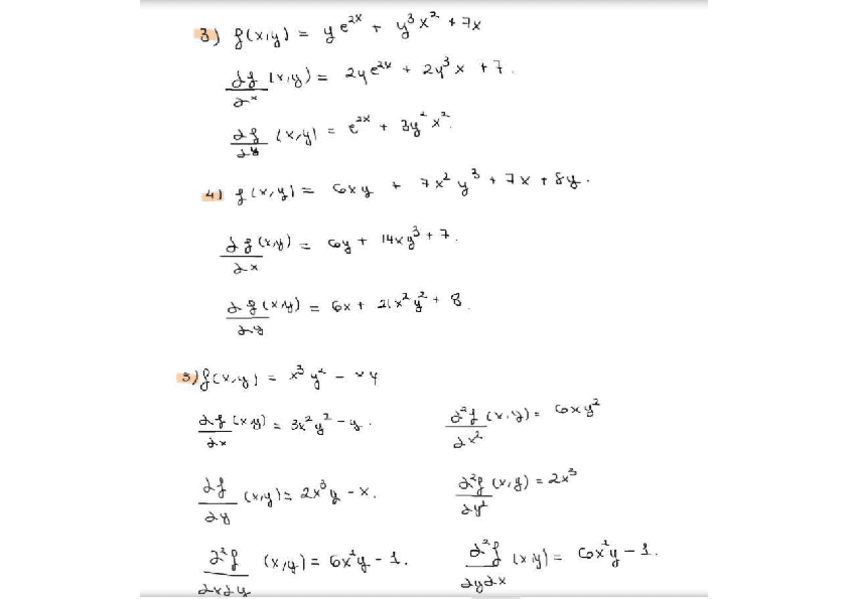 3) f(x,y) = y e^{2x} + y³x² + 7x
∂f/∂x (x,y) = 2ye^{2x} + 2y³x + 7.
∂f/∂y (x,y) = e^{2x} + 3y²x².
4) f(x,y) = 6xy + 7x²y³ + 7x + 8y.
∂f(x,y)/∂x = 6y + 14xy³ + 7.
∂f(x,y)/∂y = 6x + 21x²y² + 8.
5) f(x,y) = x³y² - xy
∂f/∂x (x,y) = 3x²y² - y. ∂²f/∂x² (x,y) = 6xy²
∂f/∂y (x,y) = 2x³y - x. ∂²f/∂y² (x,y) = 2x³
∂²f/∂x∂y (x,y) = 6x²y - 1. ∂²f/∂y∂x (x,y) = 6x²y - 1.